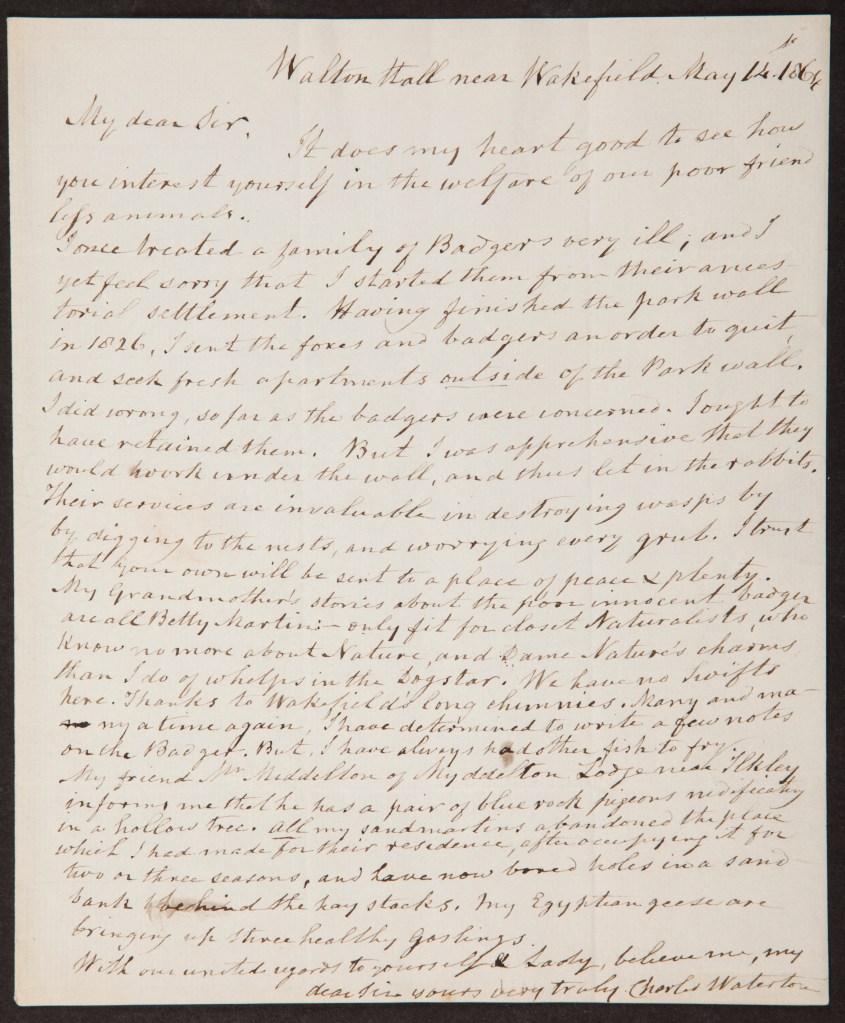 Walton Hall near Wakefield. May 14. 1864
My dear Sir,
It does my heart good to see how
you interest yourself in the welfare of our poor friend
less animals.
I once treated a family of Badgers very ill; and I
yet feel sorry that I started them from their ances
torial settlement. Having finished the park wall
in 1826, I sent the foxes and badgers an order to quit,
and seek fresh apartments outside of the Park wall.
I did wrong, so far as the badgers were concerned. I ought to
have retained them. But I was apprehensive that they
would work under the wall, and thus let in the rabbits.
Their services are invaluable in destroying wasps by
by digging to the nests, and worrying every grub. I trust
that your own will be sent to a place of peace & plenty.
My Grandmother's stories about the poor innocent badger
are all Betty Martin:- only fit for closet Naturalists, who
know no more about Nature, and Dame Nature's charms,
than I do of whelps in the Dogstar. We have no Swifts
here. Thanks to Wakefield's long chimnies. Many and ma-
ny a time again, I have determined to write a few notes
on the Badger. But, I have always had other fish to fry.
My friend Mr Middelton of Myddelton Lodge near Ilkley
informs me that he has a pair of blue rock pigeons
in a hollow tree. All my sandmartins abandoned the place
which I had made for their residence, after occupying it for
two or three seasons, and have now bored holes in a sand
bank behind the hay stacks. My Egyptian geese are
bringing up three healthy Goslings.
With our united regards to yourself & Lady, believe me, my
dear Sir yours very truly Charles Waterton